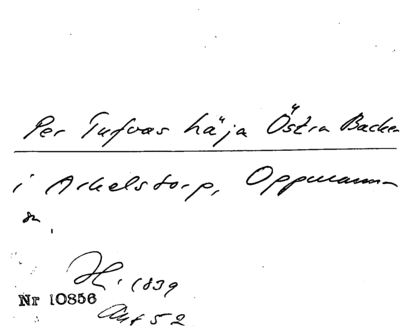 Per Tufvas häja Östra Backen
i Arkelstorp, Oppmanna
sn.
H. 1839
Nr 10856
Akt 52